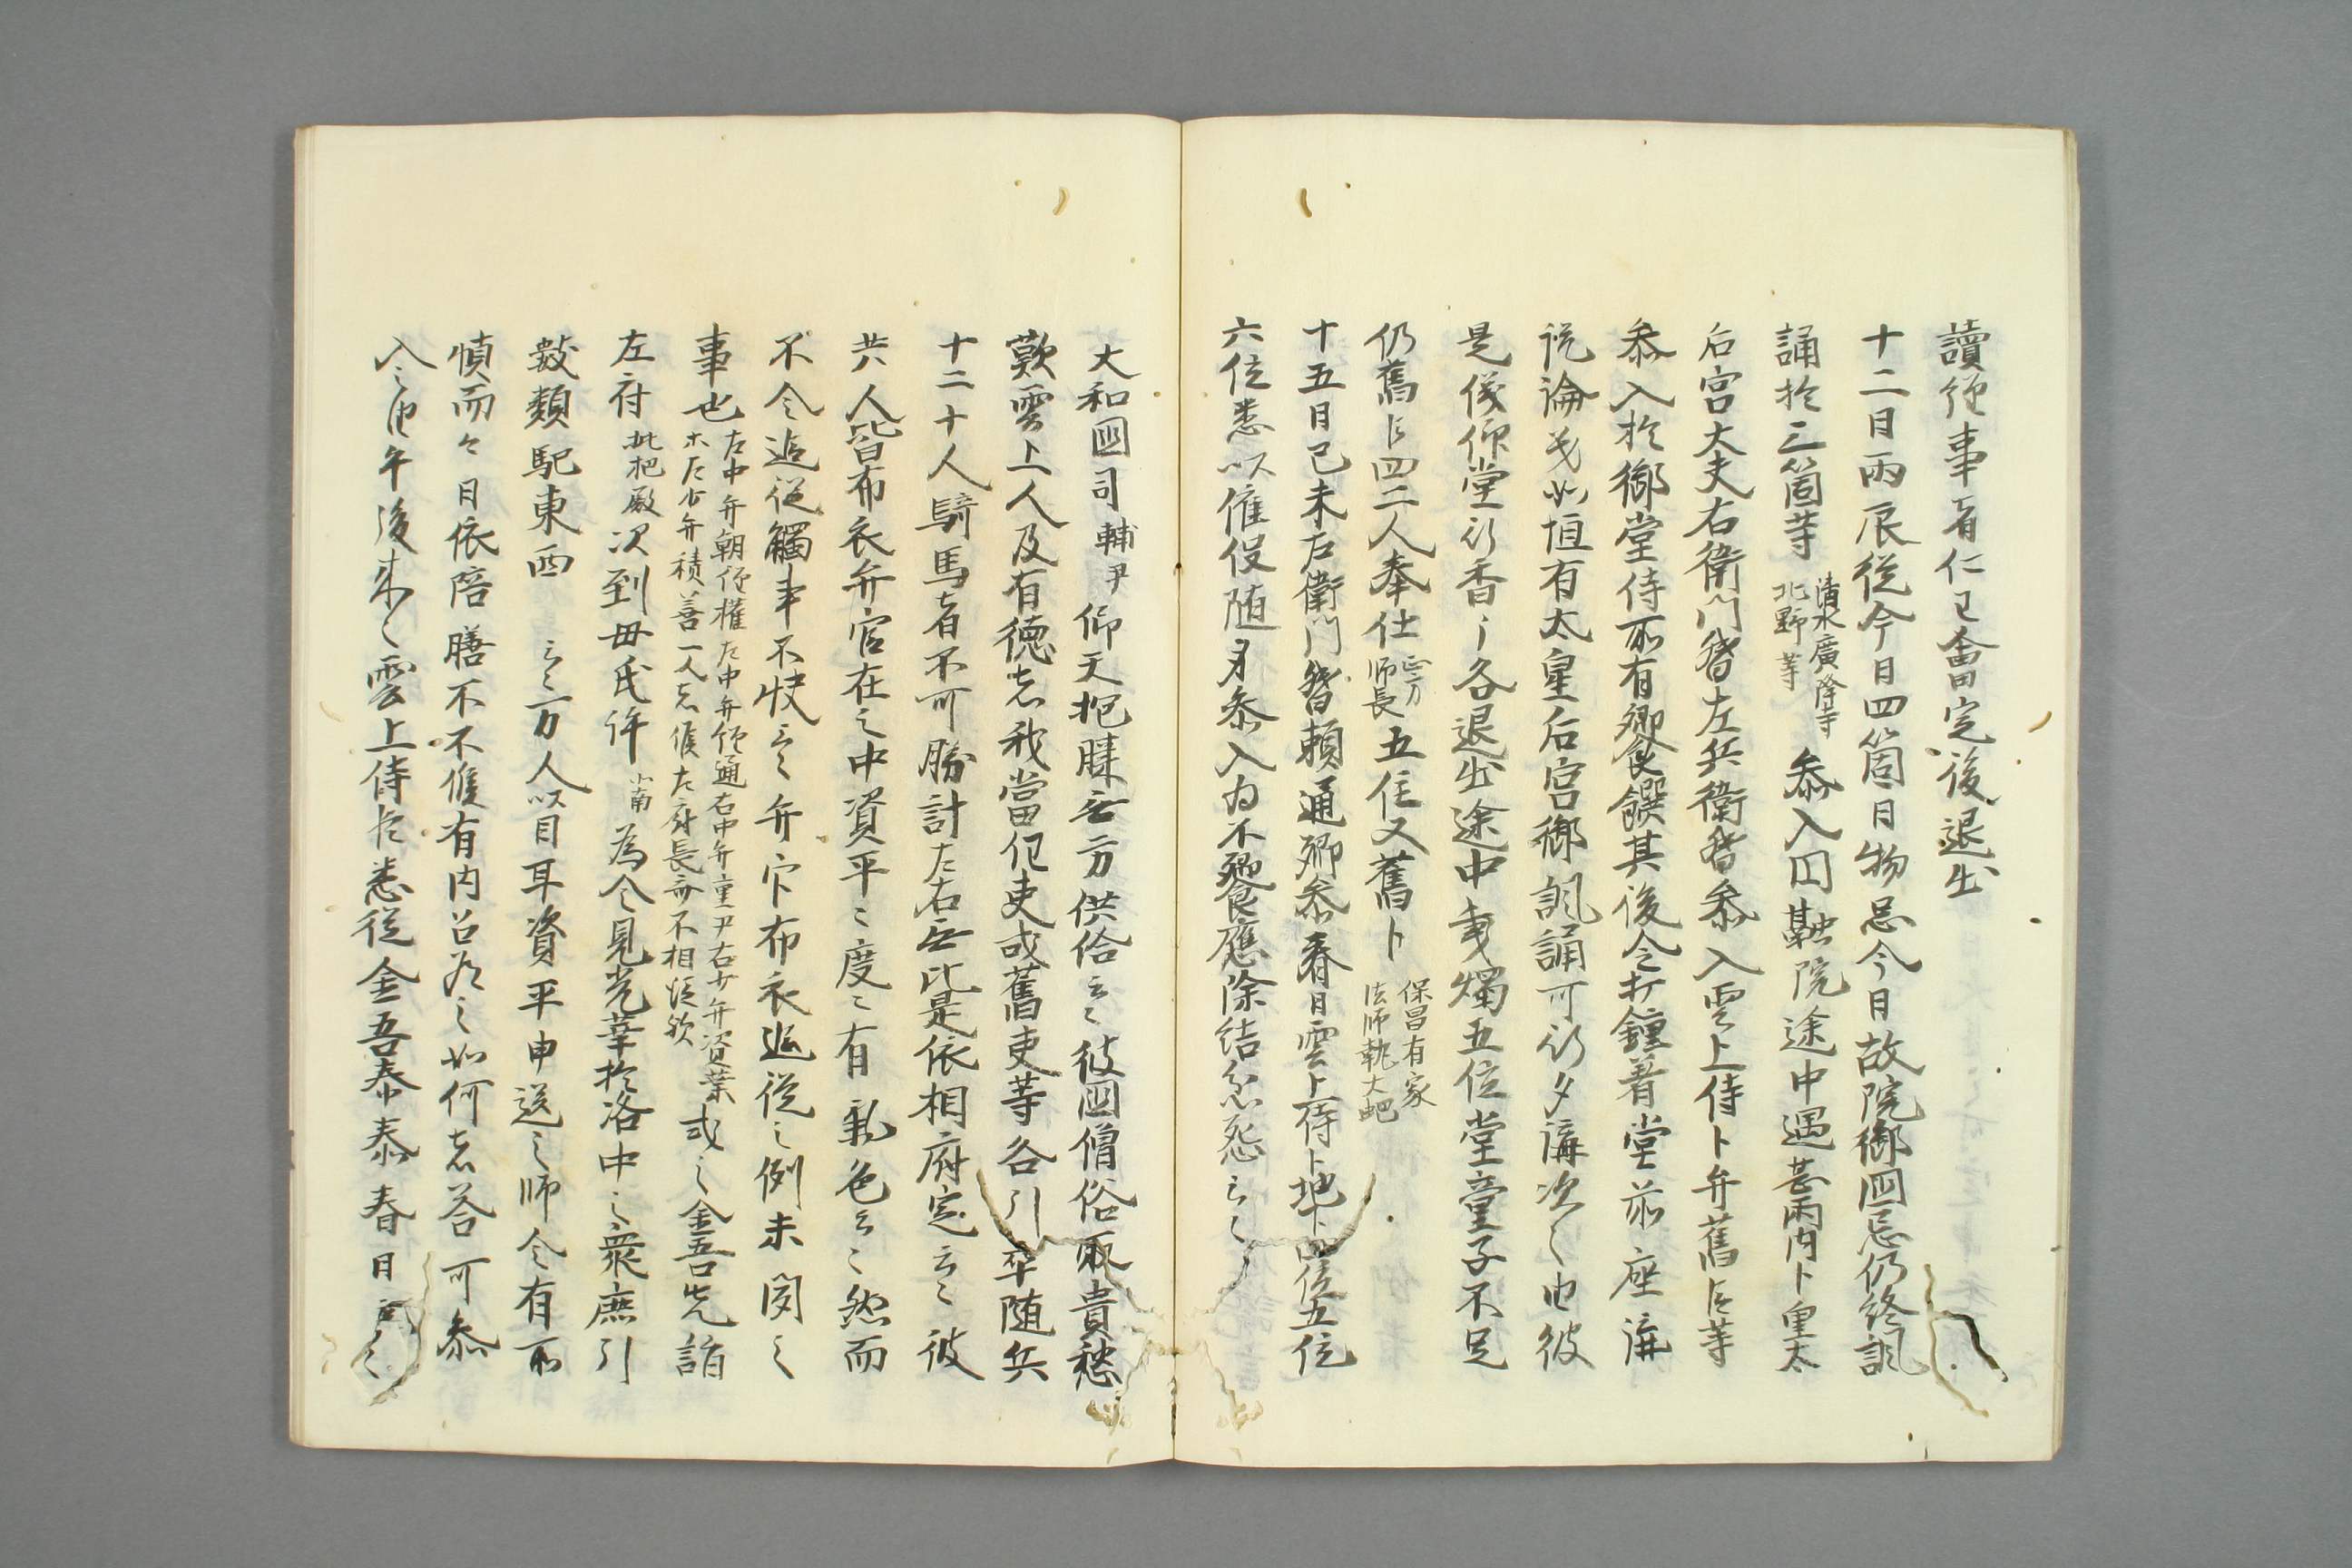 讀經事有仁王會定後退出
十二日丙辰從今日四箇日物忌今日故院御國忌仍終諷
誦於三箇寺 清水廣隆寺北野等 參入円融院途中遇甚雨内卜皇太
后宮大夫右衛門督左兵衛督參入雲上侍卜弁舊臣等
參入於御堂侍所有饗饌其後令打鐘著堂前座講
説論義如恒有太皇后宮御諷誦可行夕講次々也彼
是儀仰堂行香了各退出途中秉燭五位堂童子不足
仍舊臣四二人奉仕 五位又舊卜 保昌有家
十五日己未左衛門督頼通卿參春日雲上侍卜地下四位五位
六位悉以催役随身參入為不饗應除結怨恐云々
大和國司 輔尹 仰天抱膝無方供給云々彼國僧俗取貴愁
歎雲上人及有德者我當任吏或舊吏等各引率随兵
十二十人騎馬者不可勝計左右無比是依相府定云々彼
共人皆布衣弁官在之中資平々度々有氣色云々然而
不令追從觸事不快云々弁官布衣追從之例未聞之
事也 左中弁朝經權左中弁經通右中弁重尹右少弁資業
左少弁積善一人者候左府長命不相從歟 或云金吾先詣
左府 枇杷殿 次到母氏許 小南 為令見光華於洛中之衆庶引
數類馳東西 云々万人以目耳資平申送云師令有所
憤而々日依陪膳不候有内召為之如何者答可參
入之由午後來云雲上侍臣悉從金吾参春日